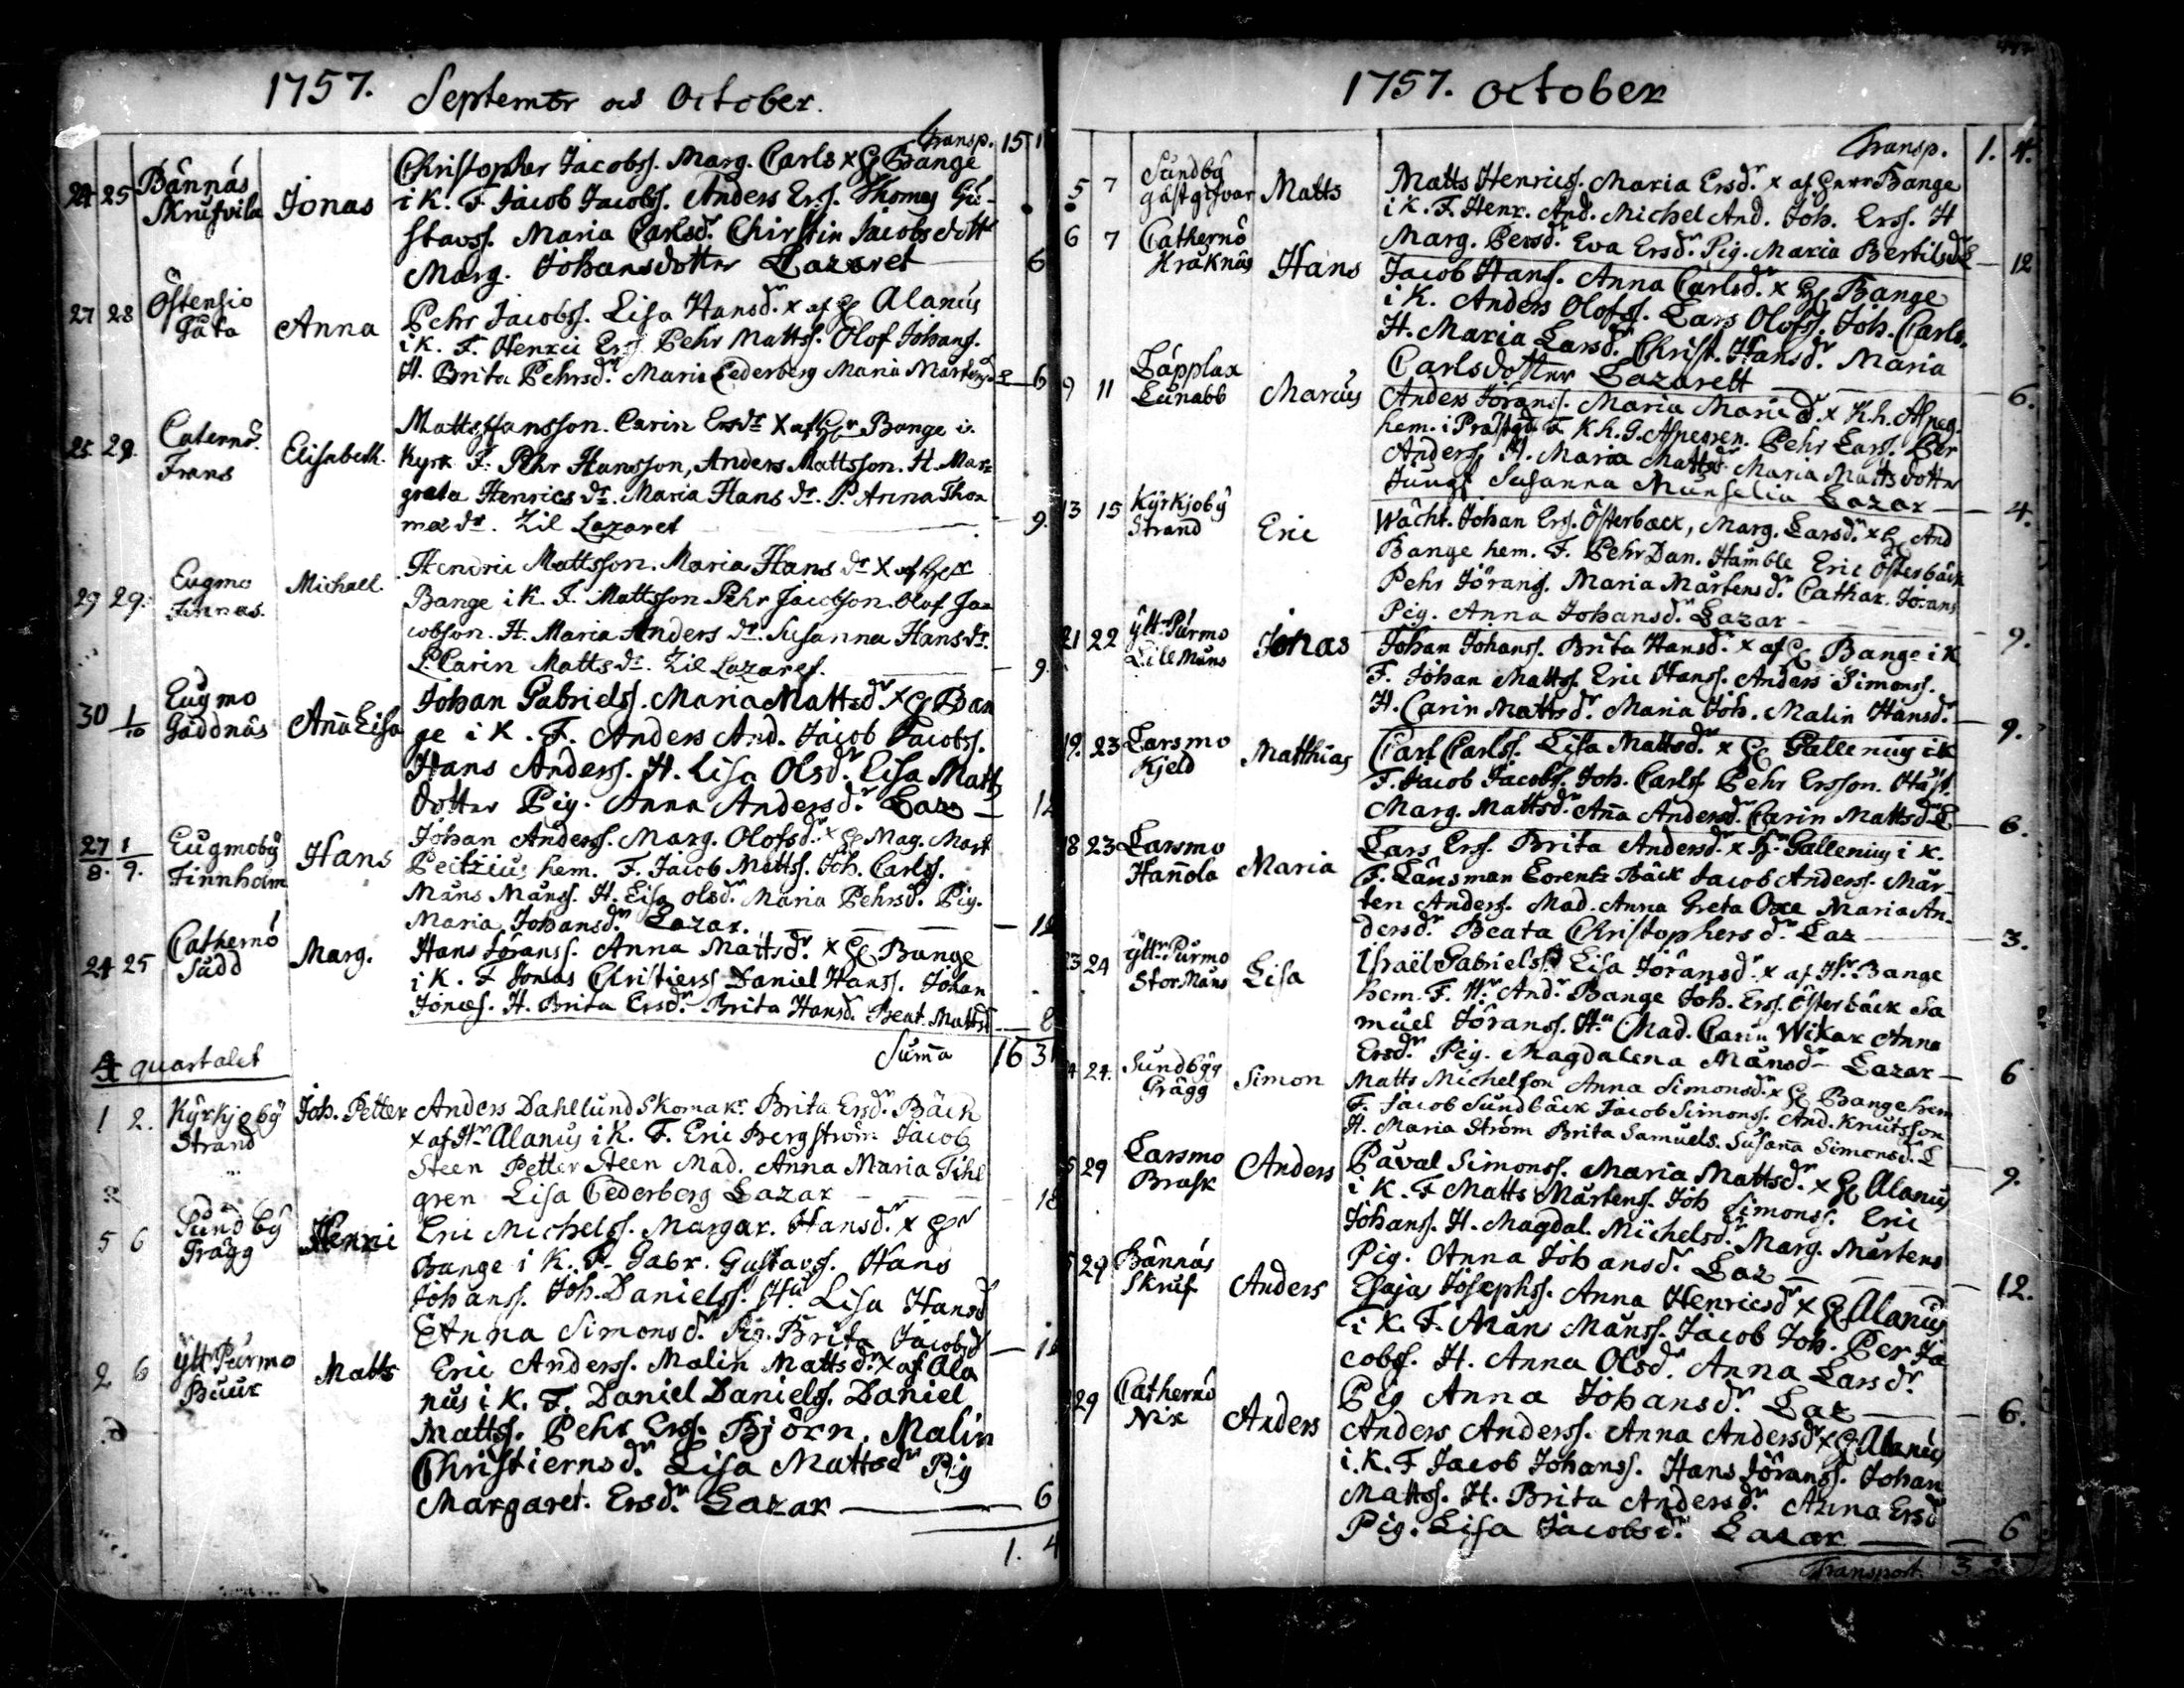 1757. September och October.
Transp. 15 1
24 25 Bännäs Skrufvila Jonas Christopher Jacobss. Marg. Carls x H Bange
i K. F. Jacob Jacobss. Anders Erss. Thomas Gu-
stavss. Maria Carlsdr. Chirstin Jacobsdottr
Marg. Johansdotter Lazaret 6
27 28 Östensiö Gåta Anna Pehr Jacobss. Lisa Hansdr. x af H Alanus
i K. F. Henric Erss. Pehr Mattss. Olof Johanss.
H. Brita Pehrsdr. Maria Cederberg Maria Mårtensd L 6
25. 29. Caternö Frans Elisabeth. Matts Hansson. Carin Ersdr x af Hr Bange i
Kyrk F. Pehr Hansson, Anders Mattsson. H. Mar=
greta Henrics dr. Maria Hans dr. P. Anna Tho=
mæ dr. Til Lazaret 9.
29 29. Eugmo Finnas. Michael Hendric Mattsson. Maria Hans dr x af Herr
Bange i K. F. Mattsson Pehr Jacobson. Olof Ja=
cobson. H. Maria Anders dr. Susanna Hansdr.
P. Carin Mattsdr. Til Lazaret. 9
30 1/10 Eugmo Gäddnäs Aña Lisa Johan Gabrielss. Maria Mattsdr x H Ban
ge i K. F. Anders And. Jacob Jacobss.
Hans Anderss. H. Lisa Olsdr. Lisa Matts
dotter Pig. Anna Andersdr. Laz 12
27/8. 1/9. Eugmoby Finnholm Hans Johan Anderss. Marg. Olofsdr. x H Mag. Mart
Peitzius hem. F. Jacob Mattss. Joh. Carlss.
Måns Månss. H. Lisa Olsdr. Maria Pehrsd. Pig.
Maria Johansdr. Lazar. 12
24 25 Cathernö Sudd Marg. Hans Jöranss. Anna Mattsdr. x H Bange
i K. F Jonas Christierss Daniel Hanss. Johan
Jonæs. H. Brita Ersdr. Brita Hansd. Beat. Mattsd 8
Suma 16 31
4 quartalet
1 2. Kyrkjoby Strand Joh. Petter Anders Dahllund Skomakr. Brita Ersdr. Bäck
x af Hr Alanus i K. F. Eric Bergström Jacob
Steen Petter Steen Mad. Anna Maria Tihl
gren Lisa Cederberg Lazar 18
5 6 Sundby Grägg Henric Eric Michelss. Margar. Hansdr. x Hr
Bange i K. F. Gabr. Gustavss. Hans
Johanss. Joh. Danielss. Hu. Lisa Hansd
Anna Simonsdr. Pig. Brita Jacobsd 12
2 6 Ytt Purmo Buur Matts Eric Anderss. Malin Mattsdr. x af Ala
nus i K. F. Daniel Danielss. Daniel
Mattss. Pehr Erss. Björn. Malin
Christiernsdr. Lisa Mattsdr Pig
Margaret. Ersdr. Lazar 6
1. 4
1757. October
Transp. 1. 4.
5 7 Sundby gästgifvar Matts Matts Henricss. Maria Ersdr. x af Herr Bange
i K. F. Henr. And. Michel And. Joh. Erss. H
Marg. Persdr. Eva Ersdr. Pig. Maria Bertilsdr L 12
6 7 Cathernö Kråknäs Hans Jacob Hanss. Anna Carlsdr. x H Bange
i K. Anders Olofss. Lars Olofss. Joh. Carls.
H. Maria Larsdr. Christ. Hansdr Maria
Carlsdotter Lazarett 6.
9 11 Lapplax Lunabb Marcus Anders Jöranss. Maria Marcidr. x K.h. Aspeg.
hem. i Prästgd. F. K.h. G. Aspegren. Pehr Larss. Per
Anderss. H. Maria Mattsdr Maria Mattsdotter
Jungf Susanna Munselia Lazar 4.
13 15 Kyrkjoby Strand Eric Wächt. Johan Erss. Österback, Marg. Larsdr. x H And
Bange hem. F. Pehr Dan. Hamble Eric Österbäck
Pehr Jöranss. Maria Mårtensdr. Cathar. Jorans
Pig. Anna Johansdr. Lazar 9.
21 22 Yttr Purmo Lill Måns Jonas Johan Johanss. Brita Hansdr. x af H Bange i K
F. Johan Mattss. Eric Hanss. Anders Simonss.
H. Carin Mattsdr. Maria Joh. Malin Hansdr. 9.
19. 23 Larsmo Kjeld Matthias Carl Carlss. Lisa Mattsdr. x H Gallenius i K
F. Jacob Jacobss. Joh. Carlss. Pehr Ersson. Hust.
Marg. Mattsdr. Aña Andersd. Carin Mattsdr L 6.
18 23 Larsmo Hañola Maria Lars Erss. Brita Andersdr. x Hr Gallenius i K.
F. Länsman Lorentz Bäck Jacob Anderss. Mår-
ten Anderss. Mad. Anna Greta Oxe Maria An-
dersdr. Beata Christophersdr. Laz 3.
23 24 Yttr. Purmo Stor Måns Lisa Israël Gabrielss. Lisa Jöransdr. x af Hr. Bange
hem. F. Hr. Andr. Bange Joh. Erss. Österbäck Sa
muel Jöranss. Hu. Mad. Carin Wikar Anna
Ersdr. Pig. Magdalena Månsdr Lazar 6
4 24. Sundby Grägg Simon Matts Michelson Anna Simonsdr. x H Bange hem
F. Jacob Sundbäck Jacob Simonss. And. Knutsson
H. Maria Ström Brita Samuels. Susaña Simonsd. L 9.
5 29 Larsmo Brask Anders Påval Simonss. Maria Mattsdr. x H Alanus
i K. F. Matts Mårtenss. Joh Simonss. Eric
Johanss. H. Magdal. Michelsd. Marg. Mårtens
Pig. Anna Johansdr. Laz 12.
5 29 Bännäs Skruf Anders Esajas Josephss. Anna Henricsdr x H Alanus
i K. F. Måns Månss. Jacob Joh. Per Ja
cobss. H. Anna Olsdr. Anna Larsdr.
Pig Anna Johansdr. Laz 6.
29 Cathernö Nix Anders Anders Anderss. Anna Andersdr x H Alanus
i. K. F Jacob Johanss. Hans Jöranss. Johan
Mattss. H. Brita Andersdr. Anna Ersd
Pig. Lisa Jacobsdr. Lazar 6
Transport. 3